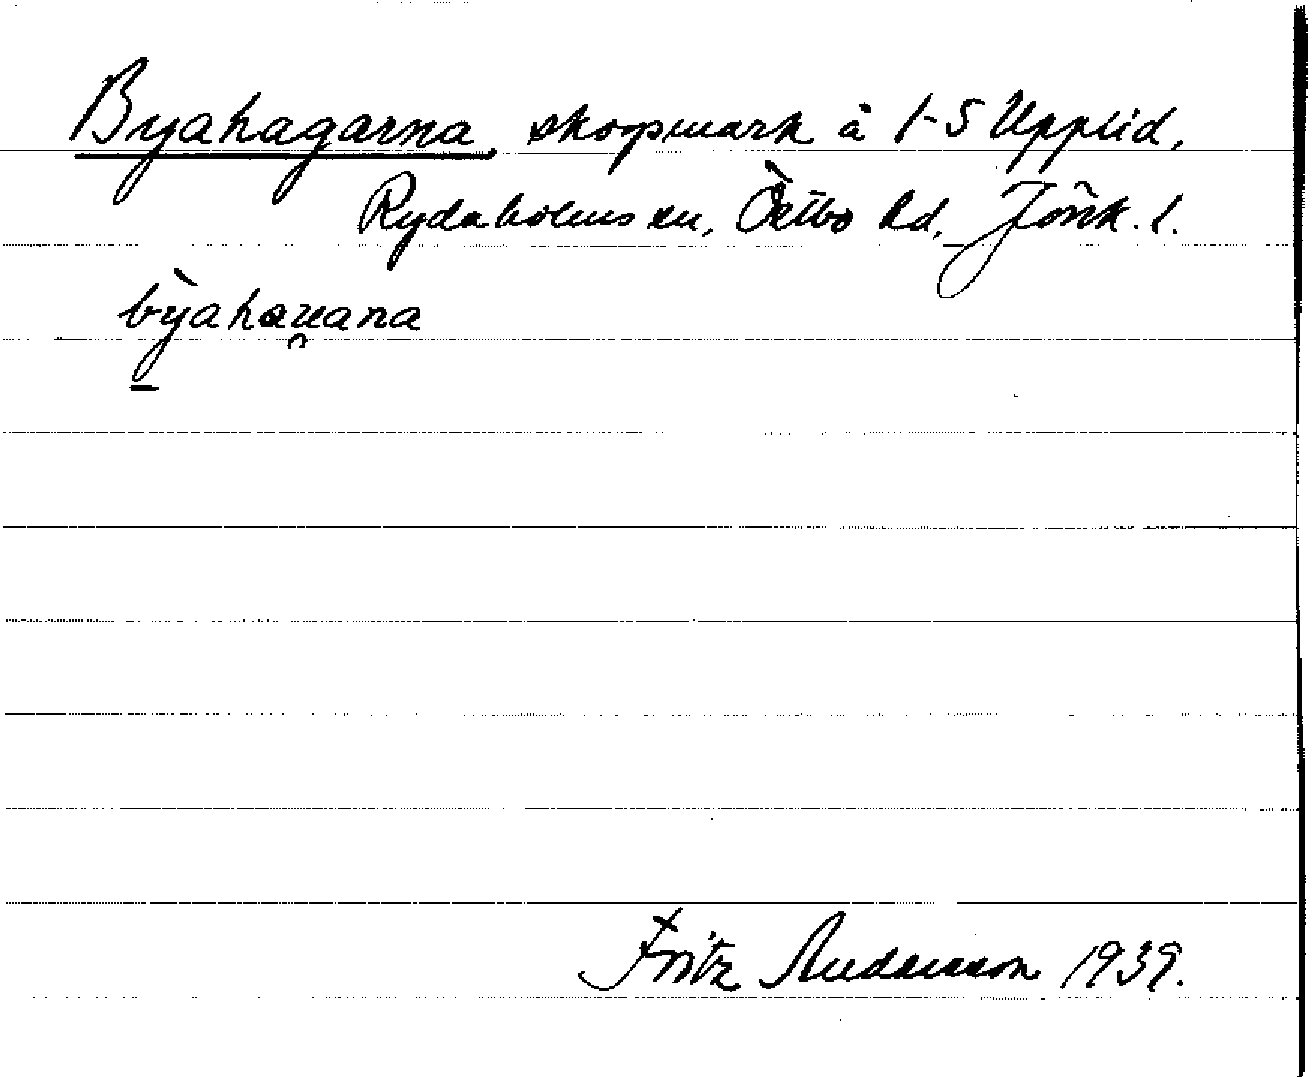 Byahagarna, skogsmark å 1-5 Upplid,
Rydaholms sn, Östbo hd, Jönk. l.
byahau̯ana
Fritz Andersson 1939.